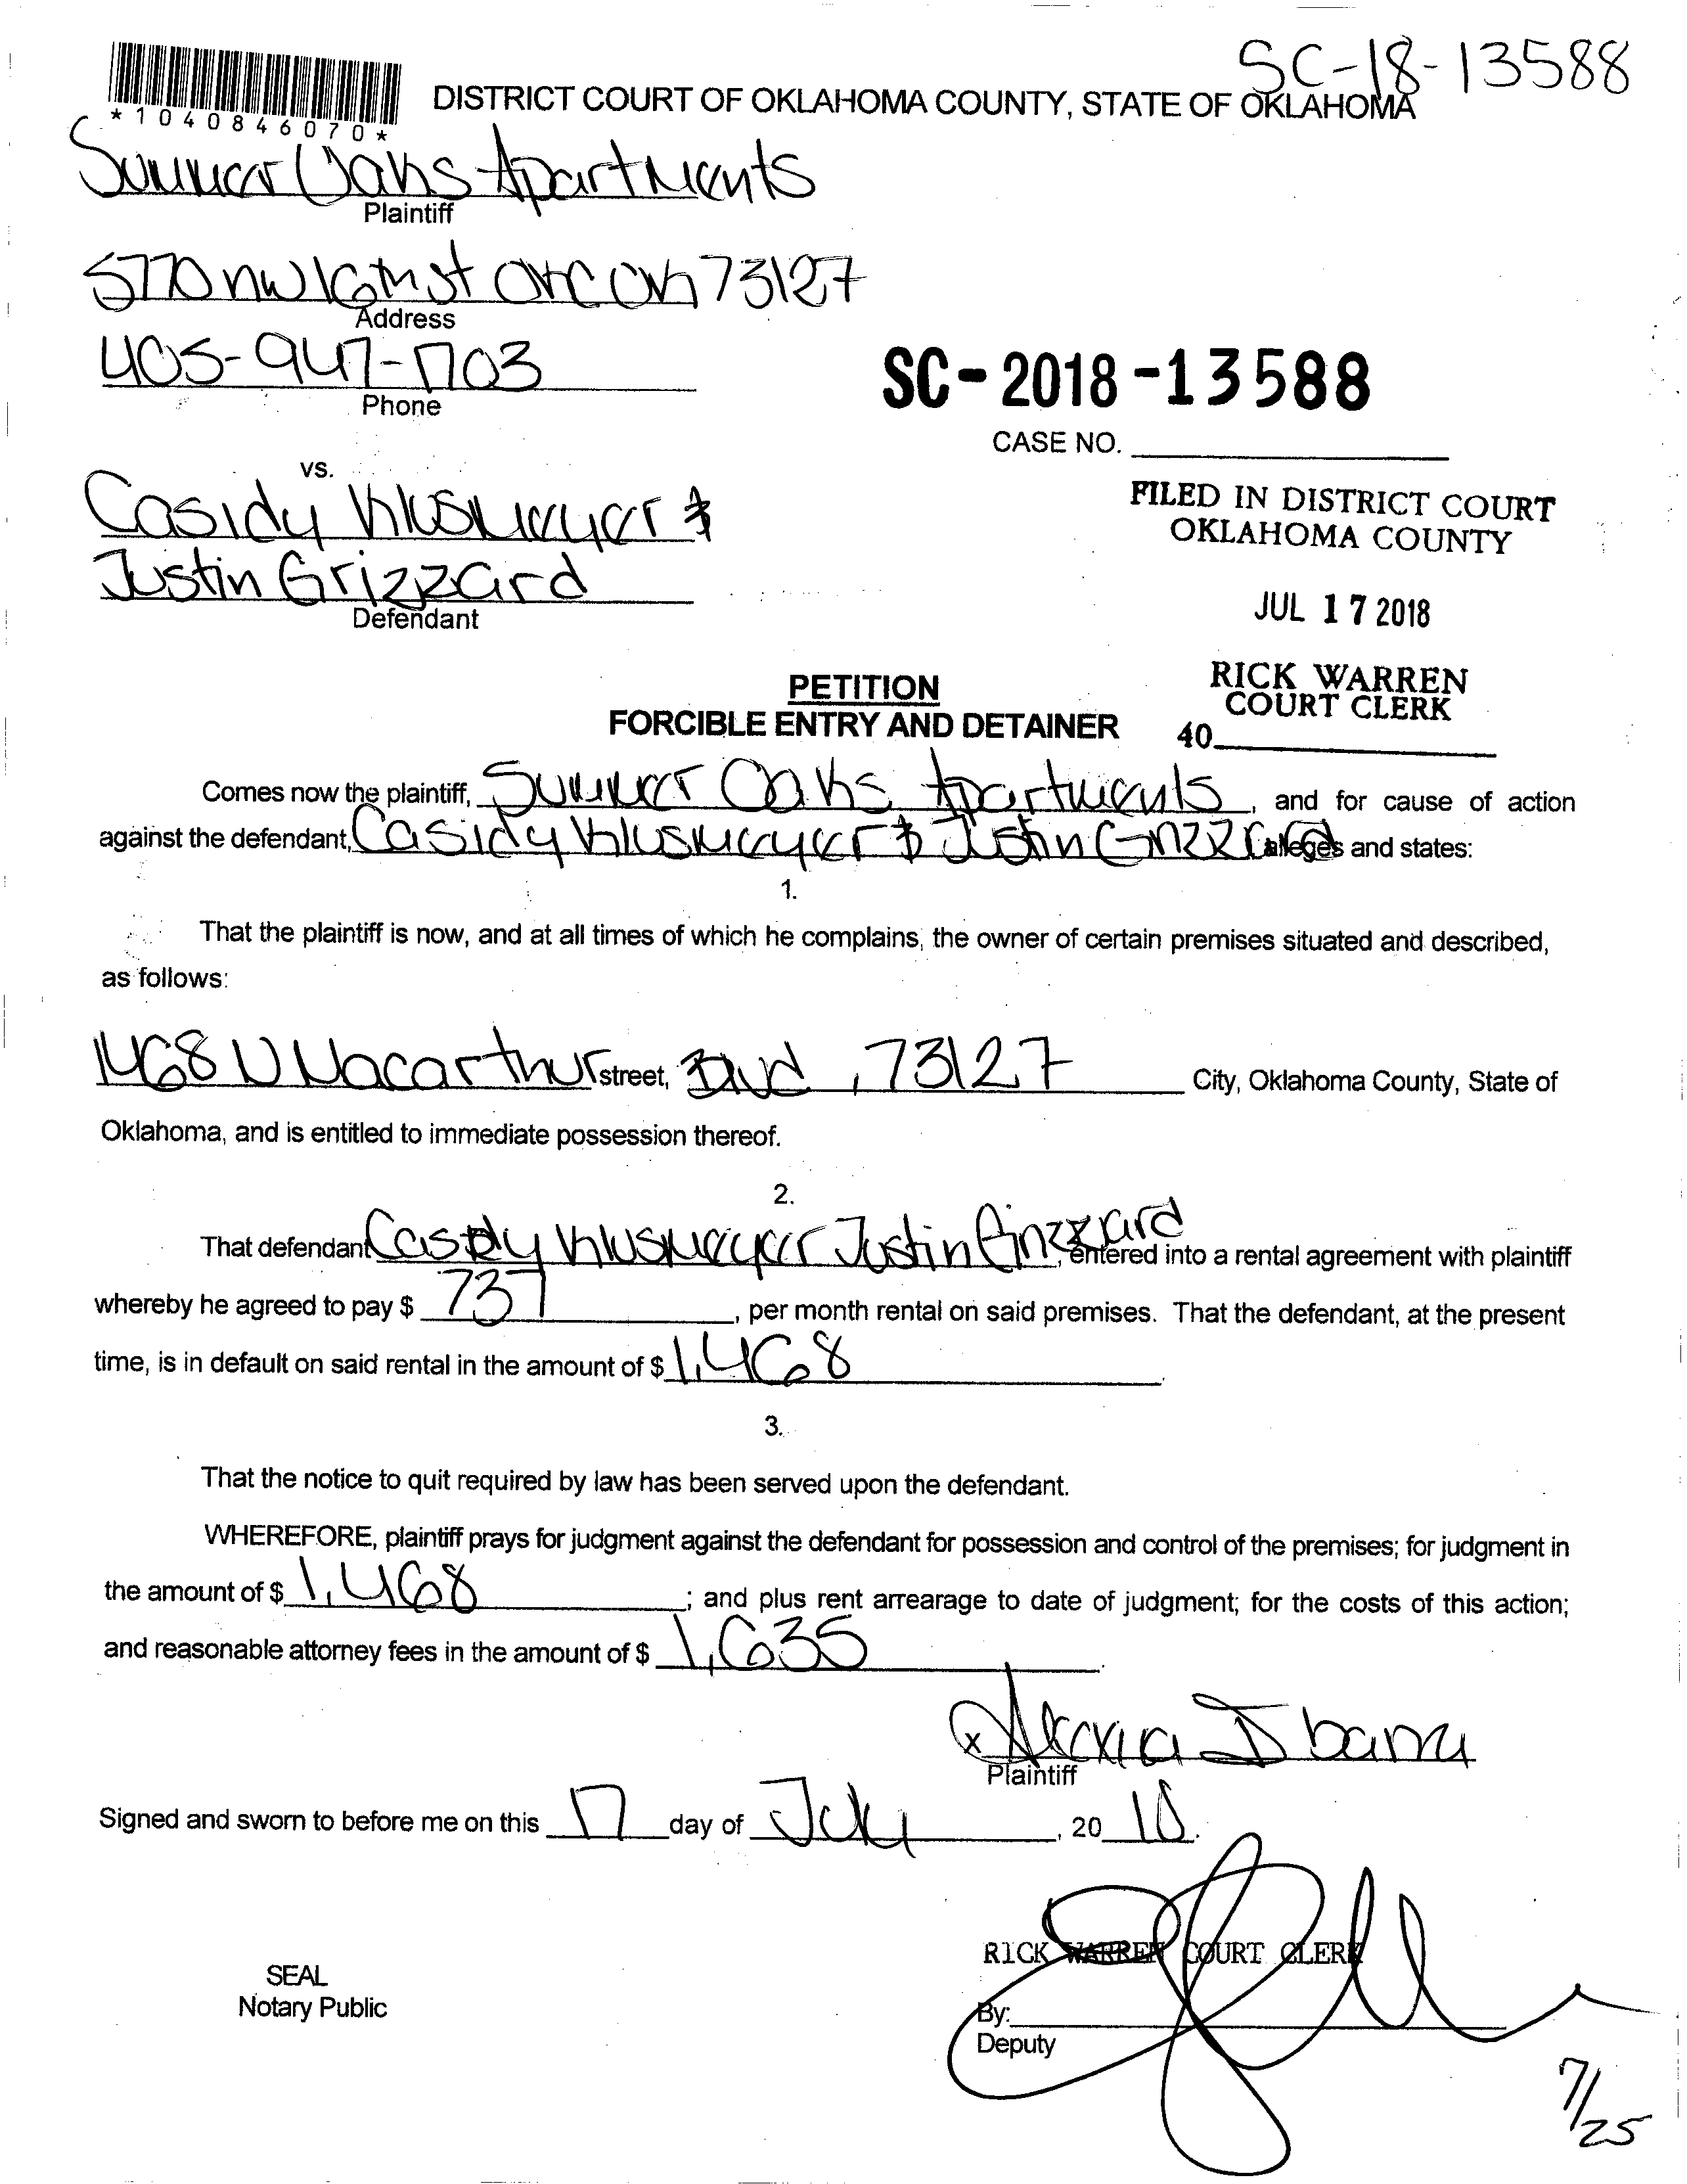 SC-18-13588
*1040846070*
DISTRICT COURT OF OKLAHOMA COUNTY, STATE OF OKLAHOMA
Summer Oaks Apartments
Plaintiff
5770 nw 16th st OKC OK 73127
Address
405-947-1703
Phone
SC-2018-13588
CASE NO.
vs.
Casidy Klusmeyer &
Justin Grizzard
Defendant
FILED IN DISTRICT COURT
OKLAHOMA COUNTY
JUL 17 2018
RICK WARREN
COURT CLERK
40
PETITION
FORCIBLE ENTRY AND DETAINER
Comes now the plaintiff, Summer Oaks Apartments, and for cause of action
against the defendant, Casidy Klusmeyer & Justin Grizzard alleges and states:
1.
That the plaintiff is now, and at all times of which he complains, the owner of certain premises situated and described,
as follows:
1468 N Macarthur street, Blvd, 73127 City, Oklahoma County, State of
Oklahoma, and is entitled to immediate possession thereof.
2.
That defendant Casidy Klusmeyer Justin Grizzard, entered into a rental agreement with plaintiff
whereby he agreed to pay $ 737, per month rental on said premises. That the defendant, at the present
time, is in default on said rental in the amount of $ 1,468.
3.
That the notice to quit required by law has been served upon the defendant.
WHEREFORE, plaintiff prays for judgment against the defendant for possession and control of the premises; for judgment in
the amount of $ 1,468; and plus rent arrearage to date of judgment; for the costs of this action;
and reasonable attorney fees in the amount of $ 1,635.
x Alexia Ibarra
Plaintiff
Signed and sworn to before me on this 17 day of July, 2018.
RICK WARREN COURT CLERK
SEAL
Notary Public
By:
Deputy
7/25